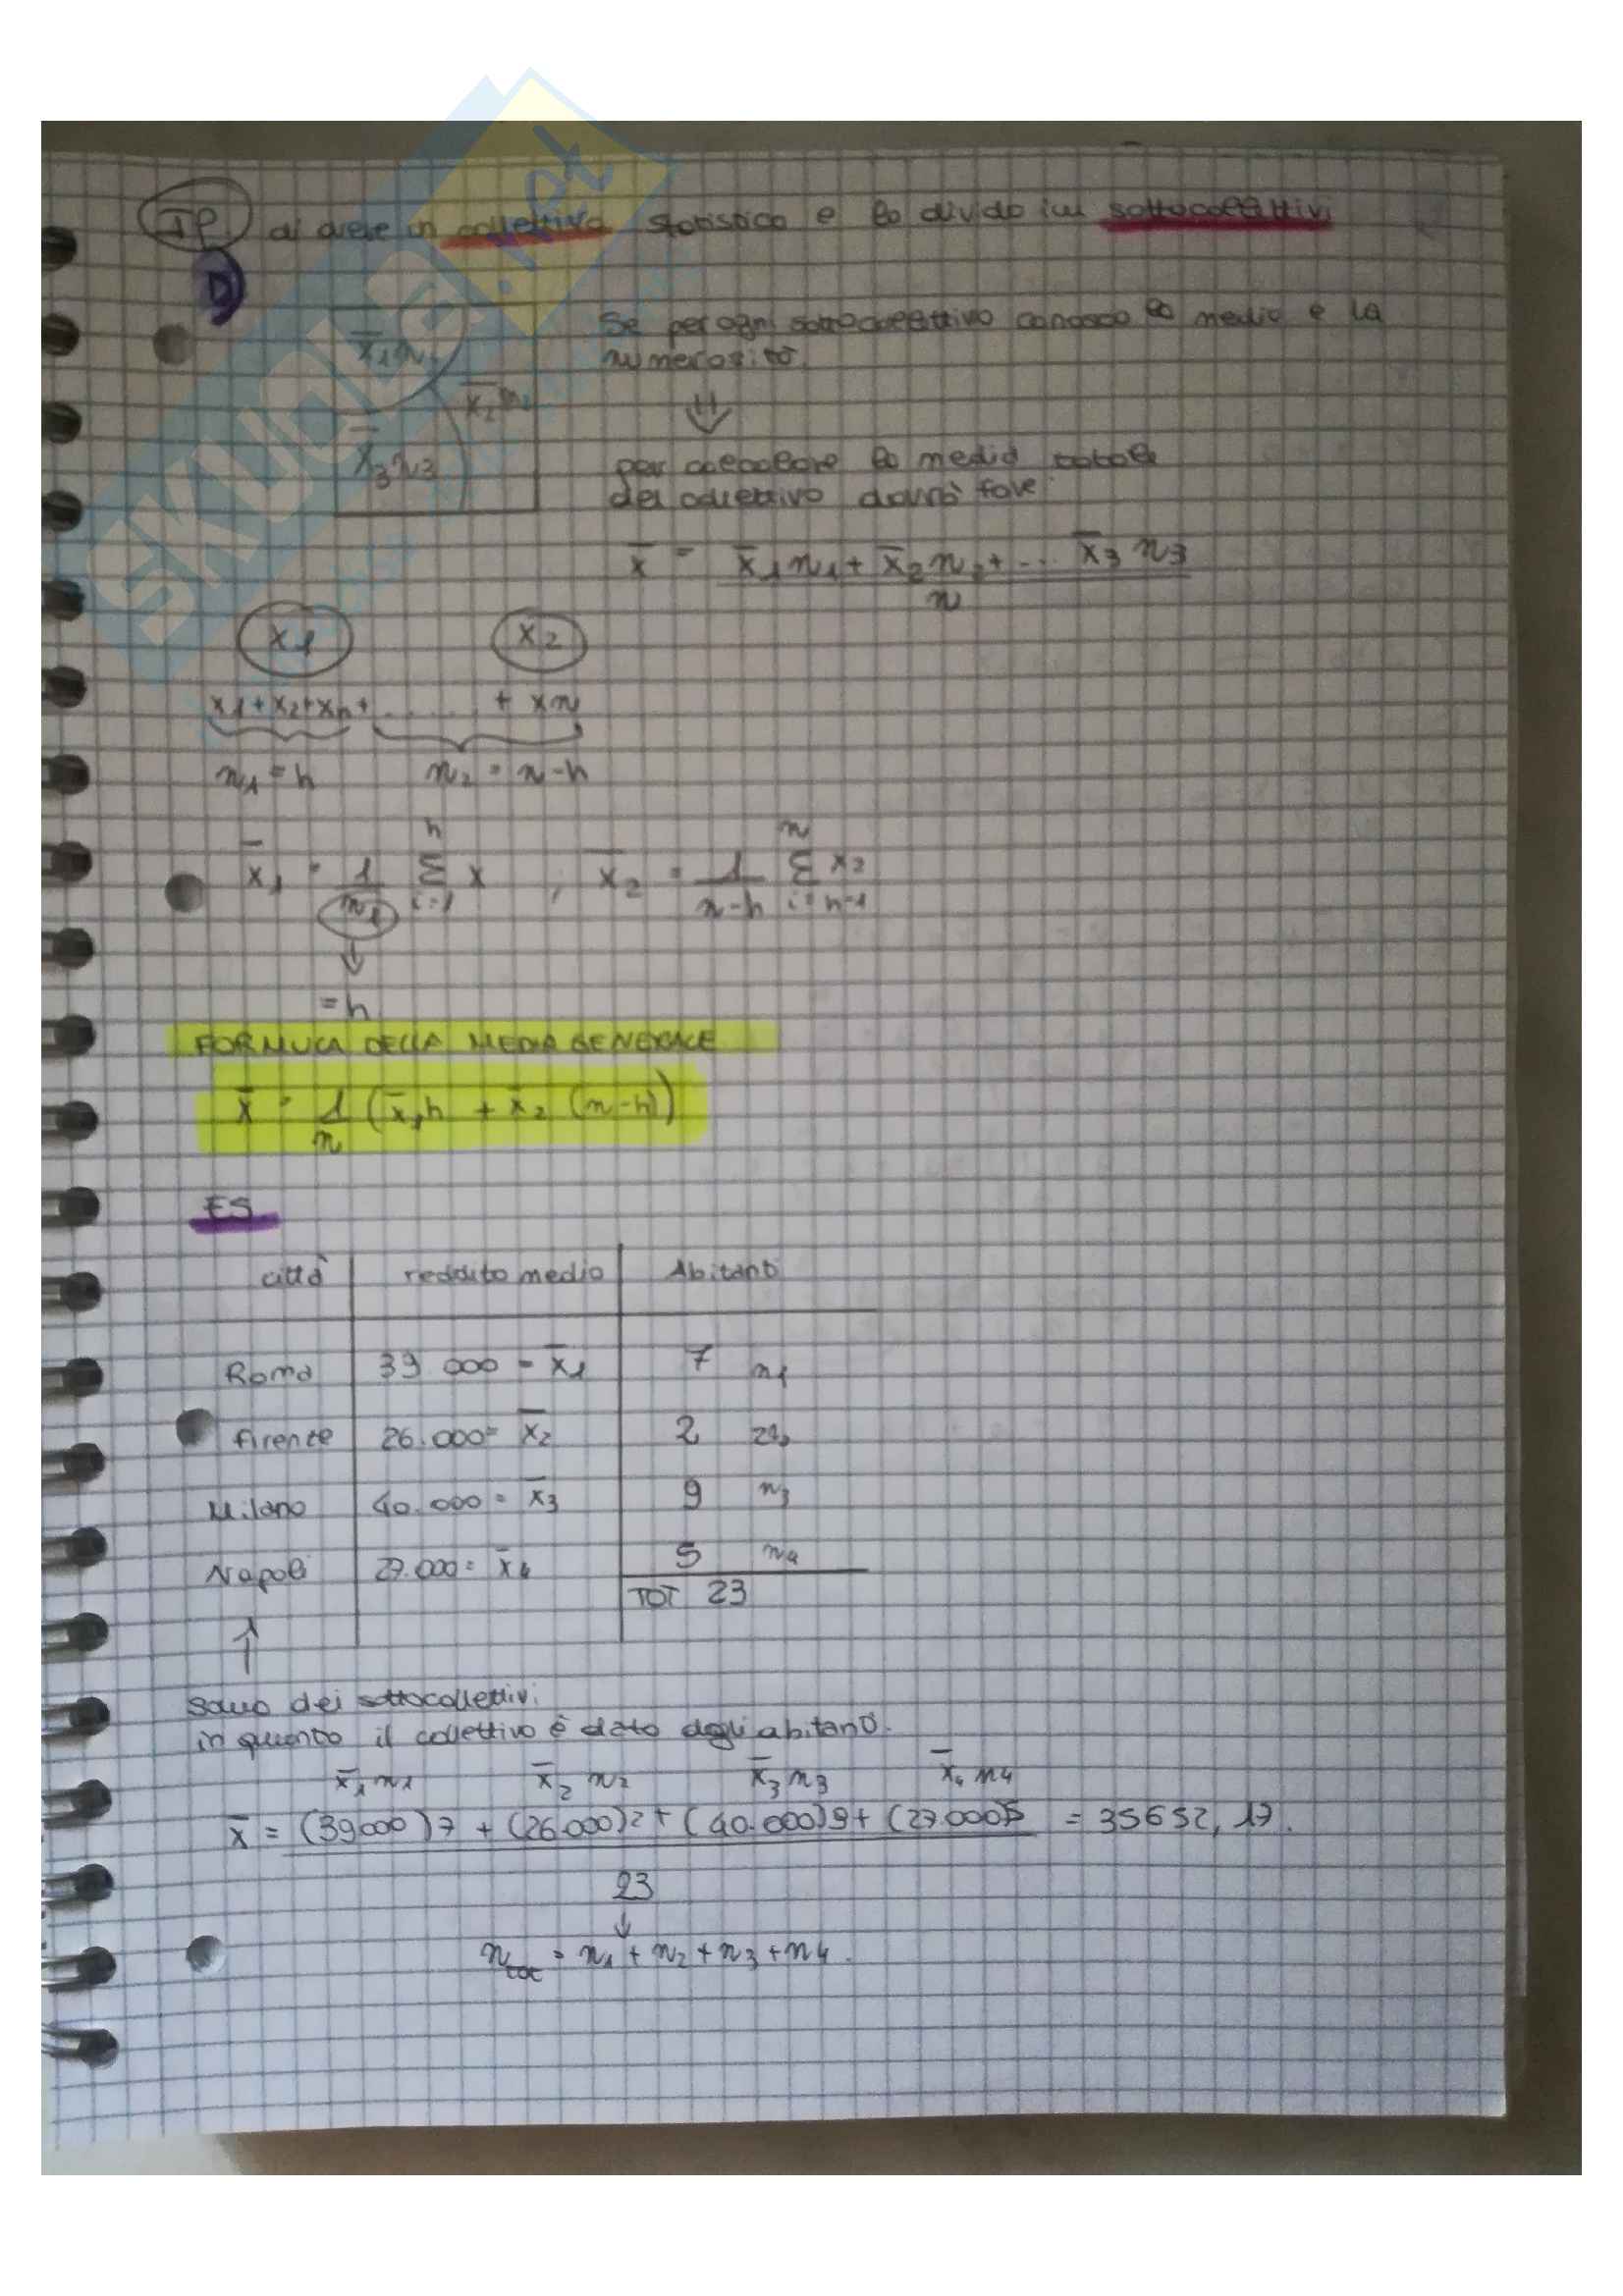 IP. di avere un collettivo statistico e lo divido in sottocollettivi
D)
Se per ogni sottocollettivo conosco la media e la
numerosità.
x̄₁n₁
x̄₂n₂
x̄₃n₃
⇓
per calcolare la media totale
del collettivo dovrò fare:
x̄ = x̄₁n₁ + x̄₂n₂ + ... x̄₃n₃
n
x₁ x₂
x₁+x₂+xₕ+ ...... + xn
n₁ = h n₂ = n-h
x̄₁ = 1/n₁ Σ(i=1, h) x , x̄₂ = 1/(n-h) Σ(i=h-1, n) x₂
↓
= h
FORMULA DELLA MEDIA GENERALE
x̄ = 1/n (x̄₁h + x̄₂ (n-h))
ES.
città reddito medio Abitanti
Roma 39 000 = x̄₁ 7 n₁
firenze 26.000= x̄₂ 2
Milano 40.000 = x̄₃ 9 n₃
Napoli 27.000= x̄₄ 5 n₄
TOT 23
↑
sono dei sottocollettivi
in quanto il collettivo è dato dagli abitanti.
x̄₁n₁ x̄₂n₂ x̄₃n₃ x̄₄n₄
x̄ = (39000)7 + (26.000)2 + (40.000)9 + (27.000)5 = 35652,17.
23
↓
n tot = n₁ + n₂ + n₃ + n₄.
SKUOLA.net